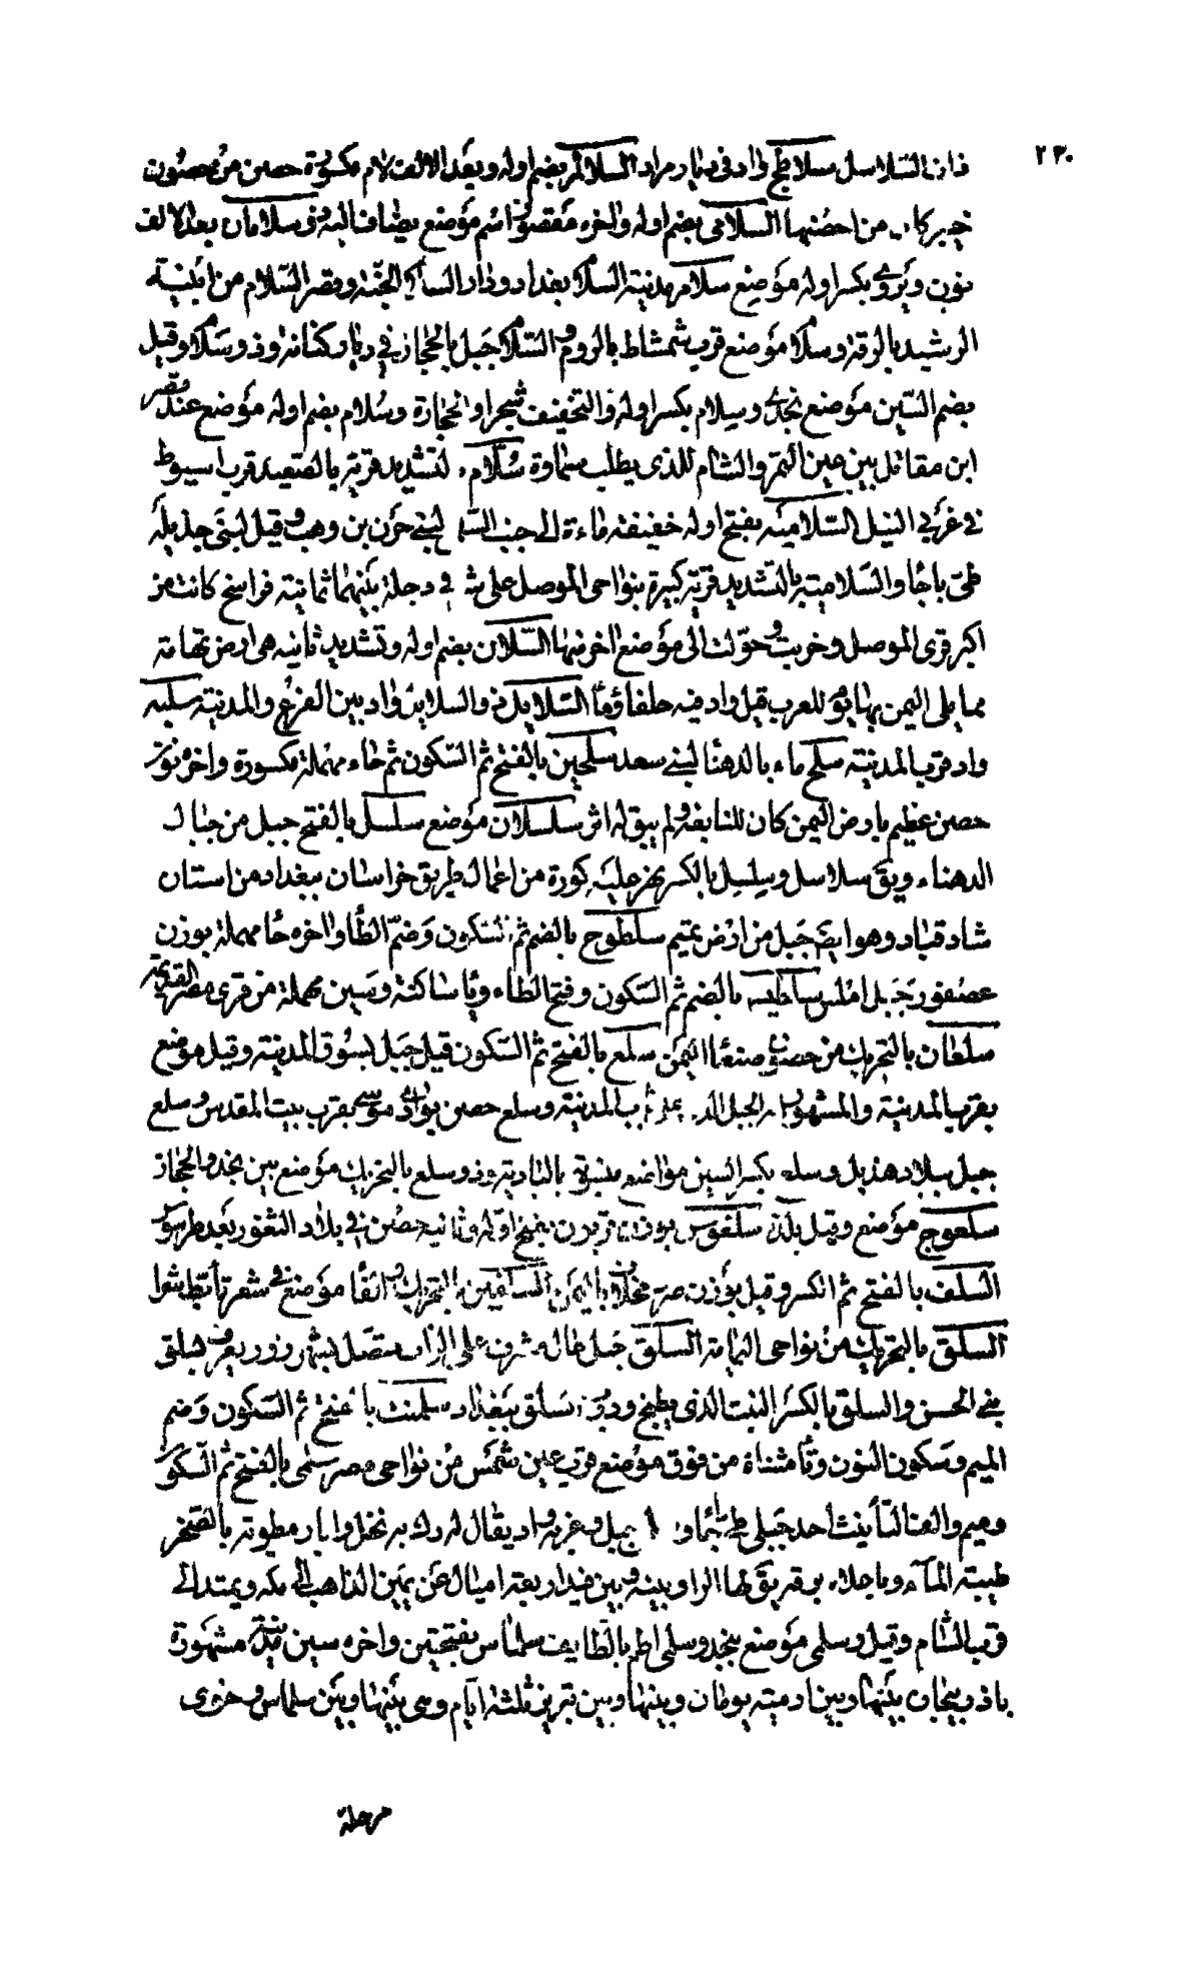 ٢٣٠
ذات السلاسل سلاطح واد في ديار مراد السلالم بضم اوله وبعد الالف لام مكسورة حصن من حصون
خيبر كان من احصنها السلامى بضم اوله واخره مقصور اسم موضع يضاف اليه ذو سلامان بعد الالف
نون ويروى بكسر اوله موضع سلام مدينة السلام بغداد ودار السلام الجنة وقصر السلام من ابنية
الرشيد بالرقة وسلام موضع قرب شمشاط بالروم والسلام جبل بالحجاز في ديار كنانة وذو سلام وقيل
بضم السين موضع نجدي وسلام بكسر اوله والتخفيف شجر او الحجارة وسلام بضم اوله موضع عند قصر
ابن مقاتل بين عين التمر والشام للذي يطلب سماوة سلام لتشديد قرية بالصعيد قرب اسيوط
في غربي النيل السلامية بفتح اوله خفيفة ماءة الى جنب لبني حزن بن وهب وقيل لبني جذيلة
طي باجا والسلامية بالتشديد قرية كبيرة بنواحى الموصل على دجلة بينهما ثمانية فراسخ كانت من
اكبر قرى الموصل وخربت وحولت الى موضع اخر منها السلان بضم اوله وتشديد ثانيه هى ارض تهامة
مما يلى اليمن بها يوم للعرب قيل واد فيه حلفاء وماء السلايل ذو السلايل واد بين الفرع والمدينة سلبة
واد قرب المدينة سلح ماء بالدهنا لبني سعد سلحين بالفتح ثم السكون ثم حاء مهملة مكسورة واخره نون
حصن عظيم بارض اليمن كان للتبابعة ولم يبق له اثر سلسلان موضع سلسل بالفتح جبل من جبال
الدهناء ويق سلاسل وسلسل بالكسر نهر عليه كورة من اعمال طريق خراسان ببغداد من استان
شاد قباد وهو ايضا جبل من ارض تميم سلطوح بالضم ثم السكون وضم الطا واخره حا مهملة بوزن
عصفور جبل املس سلطيس بالضم ثم السكون وفتح الطاء ويا ساكنة وسين مهملة من قرى مصر القديمة
سلعان بالتحريك من حصون صنعا اليمن سلع بالفتح ثم السكون قيل جبل بسوق المدينة وقيل موضع
بقرب المدينة والمشهور انه الجبل الذي بباب المدينة وسلع حصن بوادي موسى بقرب بيت المقدس وسلع
جبل ببلاد هذيل وسلع بكسر السين مواضع بالبادية وذو سلع بالتحريك موضع بين نجد والحجاز
سلعوج موضع وقيل بلدة سلغوس بوزن قربوس بفتح اوله وثانيه حصن في بلاد الثغور بعد طرسوس
السلف بالفتح ثم الكسر وقيل بوزن صرد مخلاف باليمن السلفين بالتحريك والفا موضع في شعر تأبط شرا
السلق بالتحريك من نواحى اليمامة السلق جبل عال مشرف على الزاب متصل بشهرزور يعرف بسلق
بني الحسن والسلق بالكسر النبت الذى يطبخ ودرب السلق ببغداد سلمنت بالفتح ثم السكون وضم
الميم وسكون النون وتا مثناة من فوق موضع قرب عين شمس من نواحى مصر سلمى بالفتح ثم السكون
وميم والف التأنيث احد جبلى طي اجا و وعر به واد يقال له رك به نخل وابار مطوية بالصخر
طيبة الماء وباجلاه برقة يق لها الراوبينه وبين فيد اربعة اميال عن يمين الذاهب الى مكة ويمتد الى
قرب الشام وقيل وسلمى موضع بنجد وسلمى اطم بالطايف سلماس بفتحتين واخره سين مدينة مشهورة
باذربيجان بينها وبين ارمية يومان وبينها وبين تبريز ثلثة ايام وهى بينها وبين سلماس وخوى
مرحلة